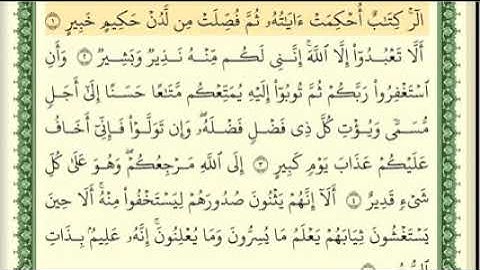 الٓر ۚ كِتَٰبٌ أُحْكِمَتْ ءَايَٰتُهُۥ ثُمَّ فُصِّلَتْ مِن لَّدُنْ حَكِيمٍ خَبِيرٍ ١
أَلَّا تَعْبُدُوٓا۟ إِلَّا ٱللَّهَ ۚ إِنَّنِى لَكُم مِّنْهُ نَذِيرٌ وَبَشِيرٌ ٢ وَأَنِ
ٱسْتَغْفِرُوا۟ رَبَّكُمْ ثُمَّ تُوبُوٓا۟ إِلَيْهِ يُمَتِّعْكُم مَّتَٰعًا حَسَنًا إِلَىٰٓ أَجَلٍ
مُّسَمًّى وَيُؤْتِ كُلَّ ذِى فَضْلٍ فَضْلَهُۥ ۖ وَإِن تَوَلَّوْا۟ فَإِنِّىٓ أَخَافُ
عَلَيْكُمْ عَذَابَ يَوْمٍ كَبِيرٍ ٣ إِلَى ٱللَّهِ مَرْجِعُكُمْ ۖ وَهُوَ عَلَىٰ كُلِّ
شَىْءٍ قَدِيرٌ ٤ أَلَآ إِنَّهُمْ يَثْنُونَ صُدُورَهُمْ لِيَسْتَخْفُوا۟ مِنْهُ ۚ أَلَا حِينَ
يَسْتَغْشُونَ ثِيَابَهُمْ يَعْلَمُ مَا يُسِرُّونَ وَمَا يُعْلِنُونَ ۚ إِنَّهُۥ عَلِيمٌۢ بِذَاتِ